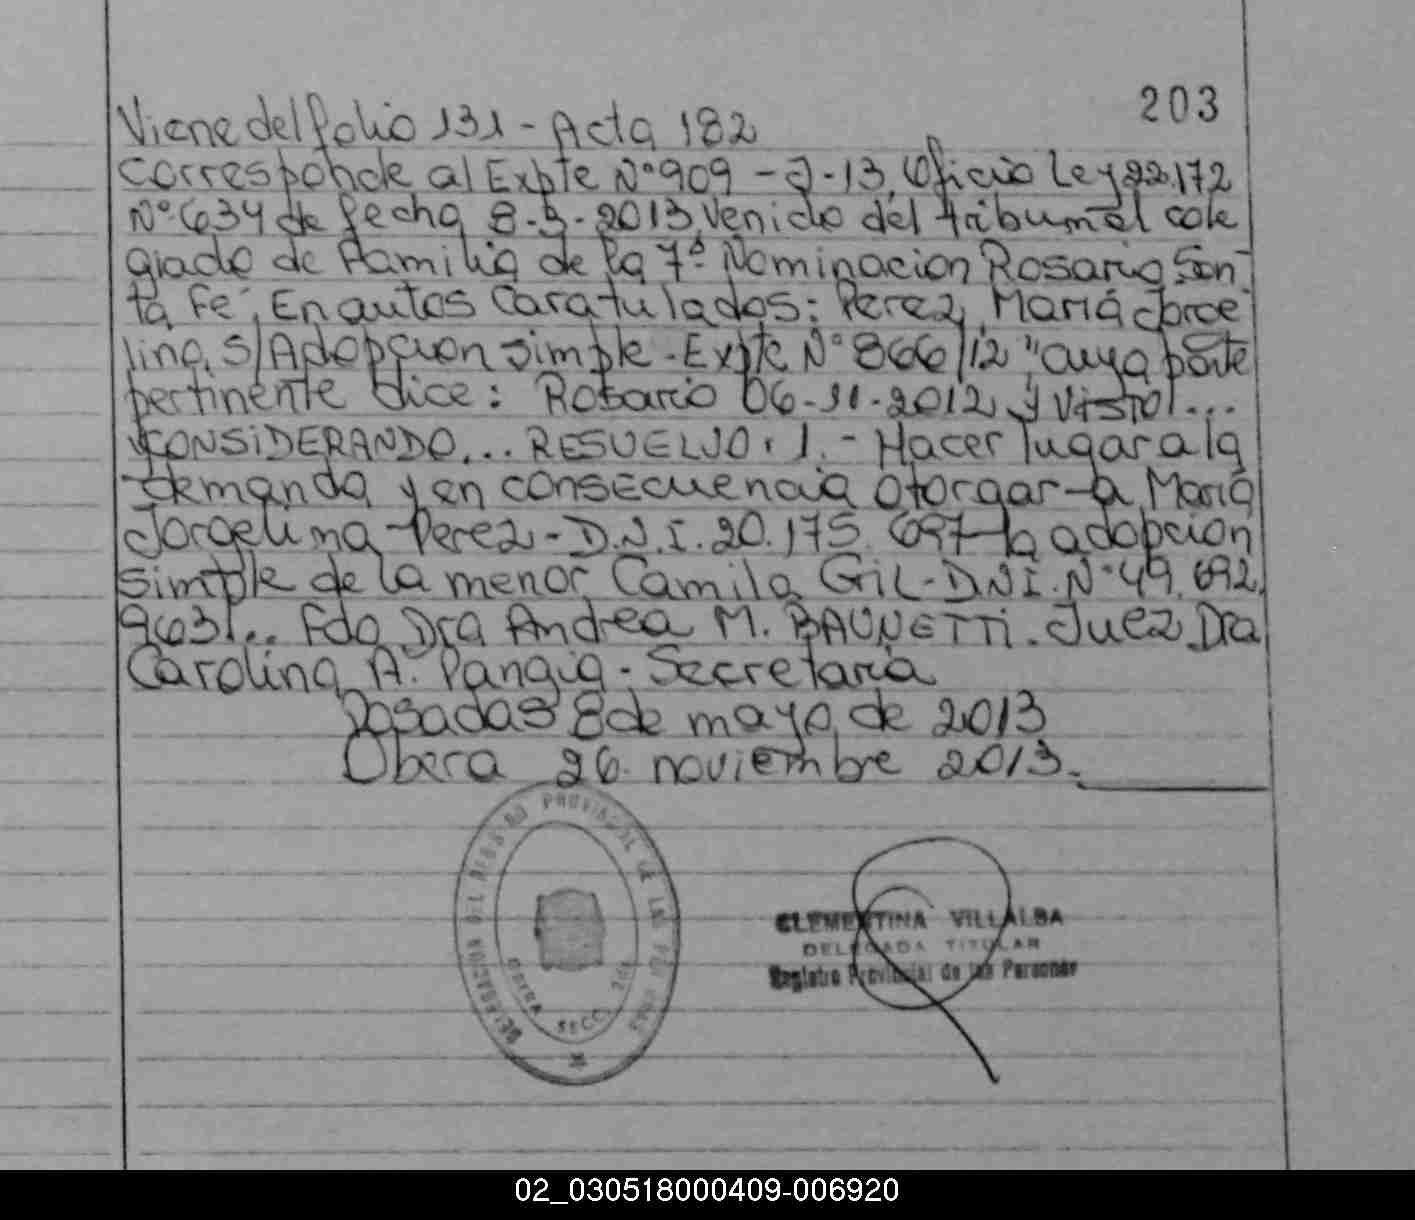 203
Viene del folio 131 - Acta 182
Corresponde al Expte Nº 909 - J - 13, Oficio Ley 22.172
Nº 634 de fecha 8-3-2013, venido del tribunal cole
giado de Familia de la 7ª Nominacion Rosario San
ta Fe, En autos Caratulados: Perez, María Jorge
lina, S/Adopcion simple - Expte Nº 866/12 "cuya parte
pertinente dice: Rosario 06-11-2012, y VISTO!...
y CONSIDERANDO... RESUELVO: 1.- Hacer lugar a la
demanda y en consecuencia otorgar a María
Jorgelina Perez - D.N.I. 20.175.697 la adopcion
simple de la menor Camila Gil - DNI. Nº 49.692.
963!.. Fdo Dra Andrea M. BRUNETTI. Juez, Dra
Carolina A. Pangia - Secretaria
Posadas 8 de mayo de 2013
Obera 26 noviembre 2013.
DELEGACION DEL REGISTRO PROVINCIAL DE LAS PERSONAS
OBERA SECC.
CLEMENTINA VILLALBA
DELEGADA TITULAR
Registro Provincial de las Personas
02_030518000409-006920